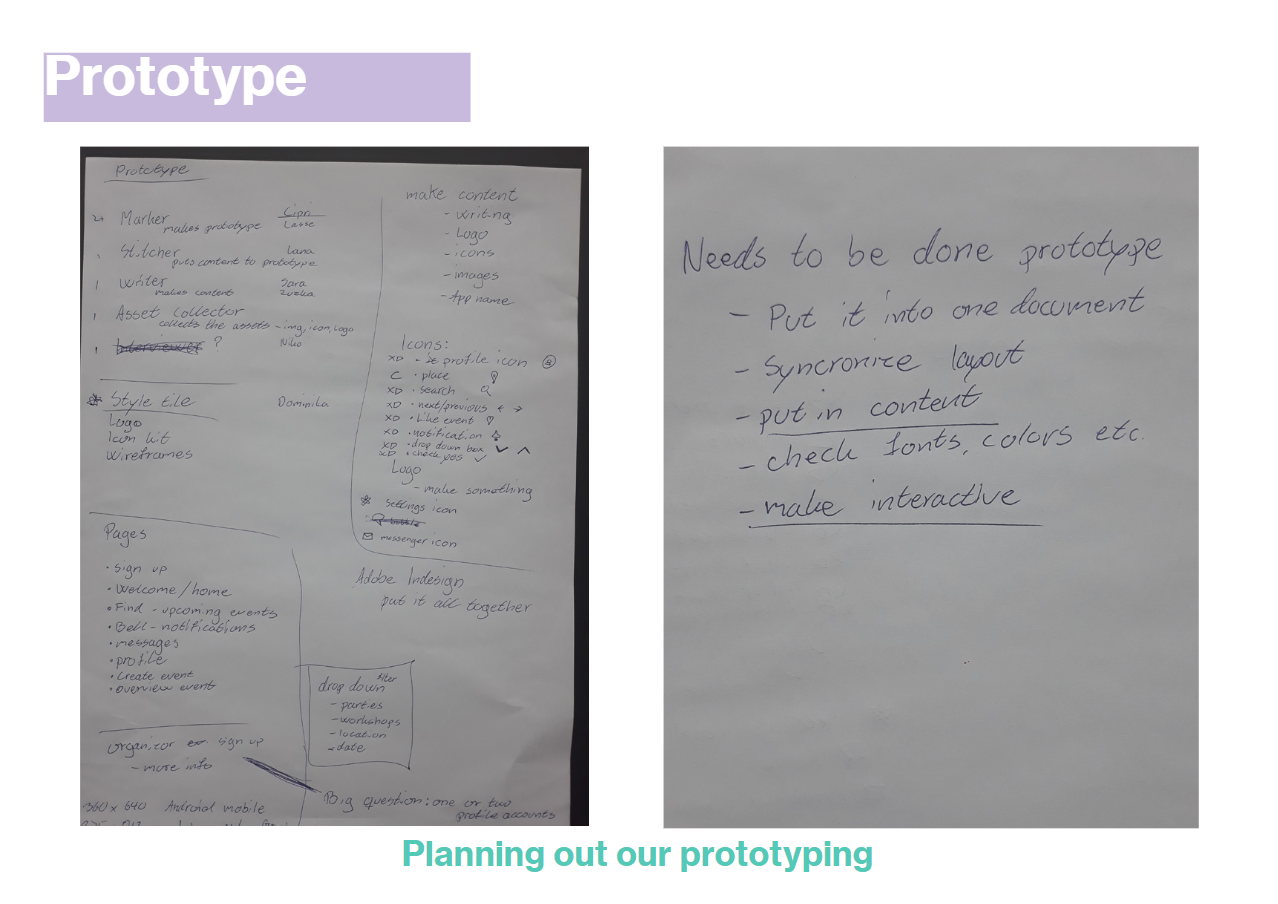 Prototype
Prototype
2x Marker Cipri
makes prototype Lasse
1 Stitcher Lana
puts content to prototype
1 Writer Sara
makes content
1 Asset collector
collects the assets - img, icon, logo
1 Interviewer ? Niko
Style tile Dominika
Logo
Icon kit
Wireframes
Pages
• sign up
• Welcome / home
• Find - upcoming events
• Bell - notifications
• messages
• profile
• Create event
• Overview event
organizor sign up
- more info
360 x 640 Android mobile
make content
- Writing
- Logo
- icons
- images
- App name
Icons:
XD • profile icon
C • place
XD • search
XD • next/previous
XD • Like event
XD • notification
XD • drop down box
XD • check yes
Logo
- make something
settings icon
messenger icon
Adobe Indesign
put it all together
drop down filter
- parties
- workshops
- location
- date
Big question: one or two
profile accounts
Needs to be done prototype
- Put it into one document
- Syncronize layout
- put in content
- check fonts, colors etc.
- make interactive
Planning out our prototyping